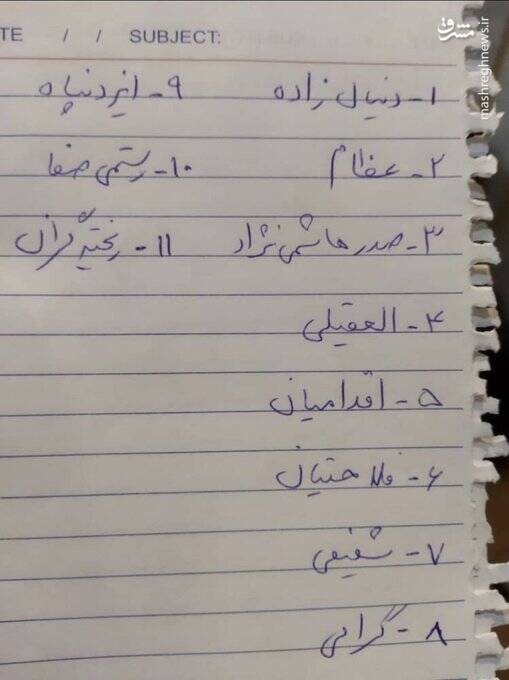 TE / / SUBJECT:
۱- دنیال زاده
۲- عظام
۳- صدرهاشمی نژاد
۴- العقیلی
۵- اقدامیان
۶- فلاحتیان
۷- شفیعی
۸- گرامی
۹- ایزدپناه
۱۰- رستمی صفا
۱۱- ریخته گران
مشرق
mashreghnews.ir